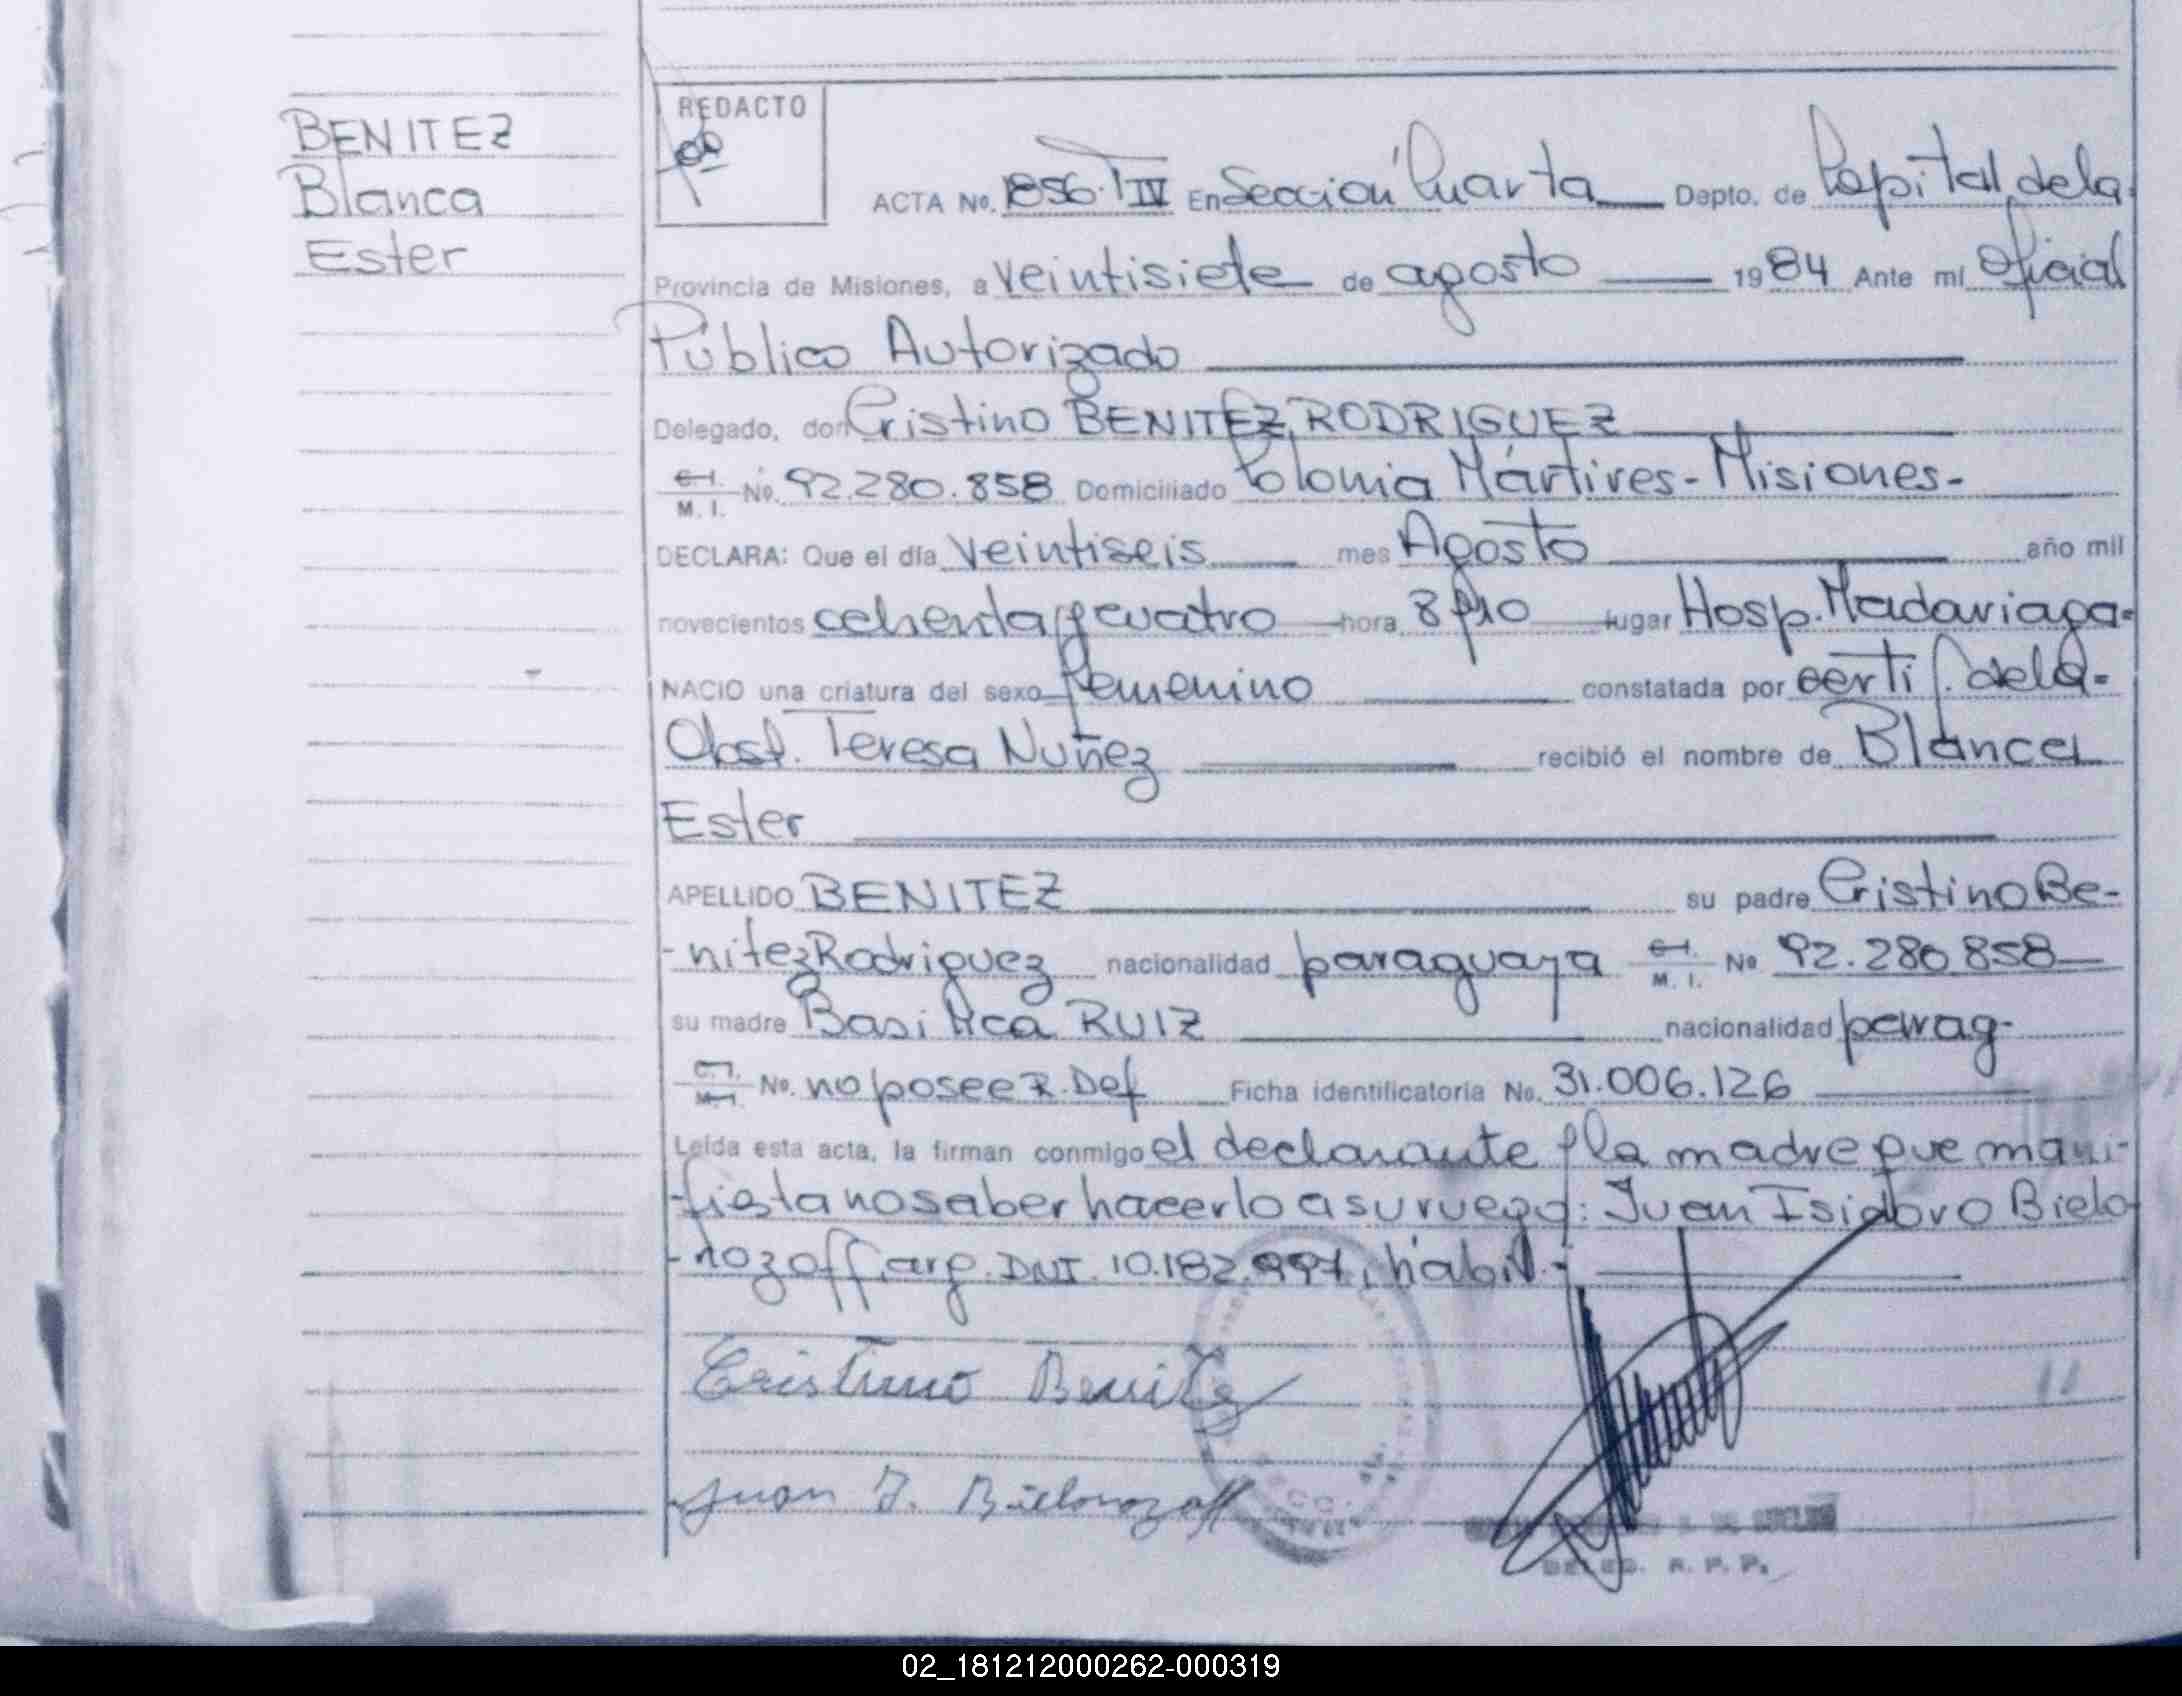 BENITEZ
Blanca
Ester
REDACTO
ACTA No. 1856. T IV En Sección Cuarta Depto. de Capital, de la
Provincia de Misiones, a veintisiete de agosto 1984 Ante mí Oficial
Público Autorizado
Delegado, don Cristino BENITEZ RODRIGUEZ
C.I. M. I. No. 92.280.858 Domiciliado Colonia Mártires - Misiones-
DECLARA: Que el día veintiseis mes Agosto año mil
novecientos ochenta y cuatro hora 8 y 10 lugar Hosp. Madariaga-
NACIO una criatura del sexo femenino constatada por certif. de la-
Obst. Teresa Nuñez recibió el nombre de Blanca
Ester
APELLIDO BENITEZ su padre Cristino Be-
-nitez Rodriguez nacionalidad paraguaya C.I. M. I. No 92.280.858
su madre Basilica RUIZ nacionalidad parag-
C.I. M.I. No. no posee R. Def Ficha identificatoria No. 31.006.126
Leída esta acta, la firman conmigo el declarante y la madre que mani-
-fiesta no saber hacerlo a su ruego: Juan Isidoro Bielo
-nozoff, arg. DNI. 10.182.997, hábil.-
Cristino Benitez
Juan I. Bielonozoff
DELEG. R. P. P.
02_181212000262-000319